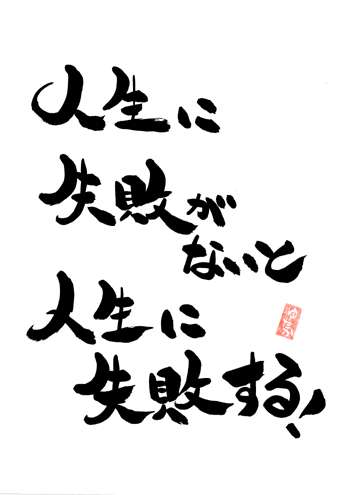 人生に
失敗が
ないと
人生に
失敗する!
ゆたか